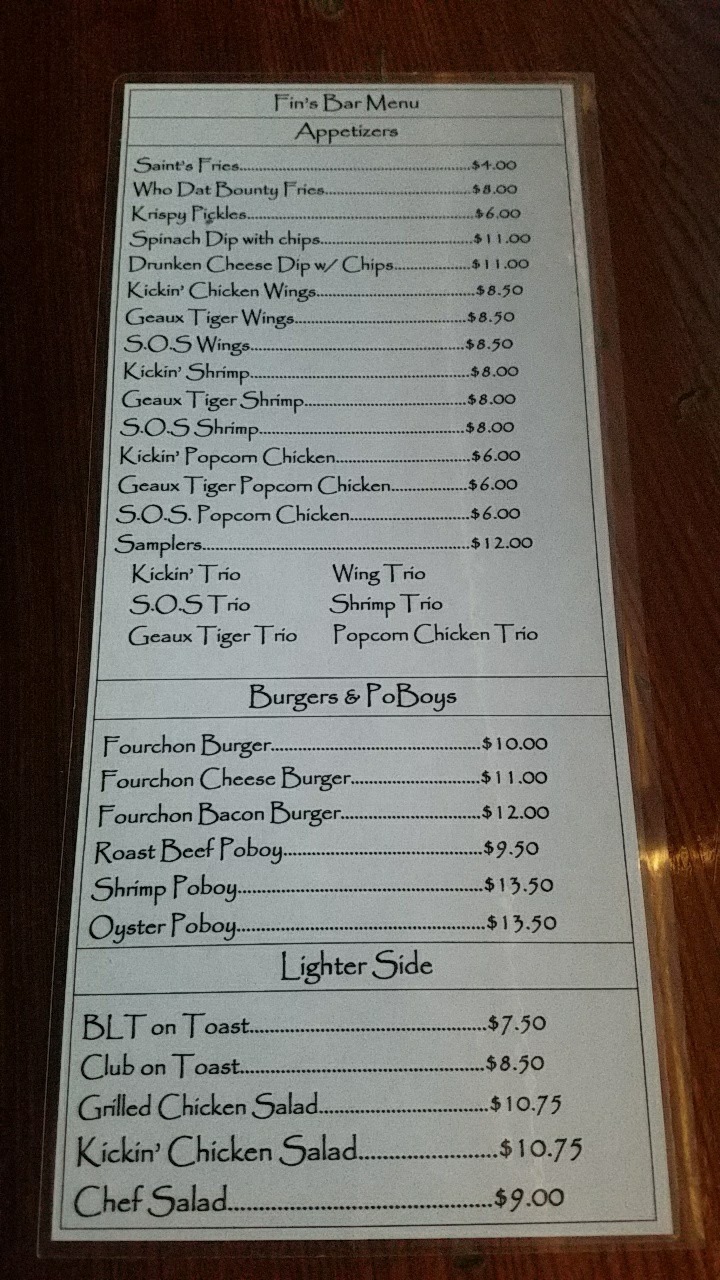 Fin's Bar Menu
Appetizers
Saint's Fries...............$4.00
Who Dat Bounty Fries...............$8.00
Krispy Pickles...............$6.00
Spinach Dip with chips...............$11.00
Drunken Cheese Dip w/ Chips...............$11.00
Kickin' Chicken Wings...............$8.50
Geaux Tiger Wings...............$8.50
S.O.S Wings...............$8.50
Kickin' Shrimp...............$8.00
Geaux Tiger Shrimp...............$8.00
S.O.S Shrimp...............$8.00
Kickin' Popcorn Chicken...............$6.00
Geaux Tiger Popcorn Chicken...............$6.00
S.O.S. Popcorn Chicken...............$6.00
Samplers...............$12.00
Kickin' Trio Wing Trio
S.O.S Trio Shrimp Trio
Geaux Tiger Trio Popcorn Chicken Trio
Burgers & PoBoys
Fourchon Burger...............$10.00
Fourchon Cheese Burger...............$11.00
Fourchon Bacon Burger...............$12.00
Roast Beef Poboy...............$9.50
Shrimp Poboy...............$13.50
Oyster Poboy...............$13.50
Lighter Side
BLT on Toast...............$7.50
Club on Toast...............$8.50
Grilled Chicken Salad...............$10.75
Kickin' Chicken Salad...............$10.75
Chef Salad...............$9.00